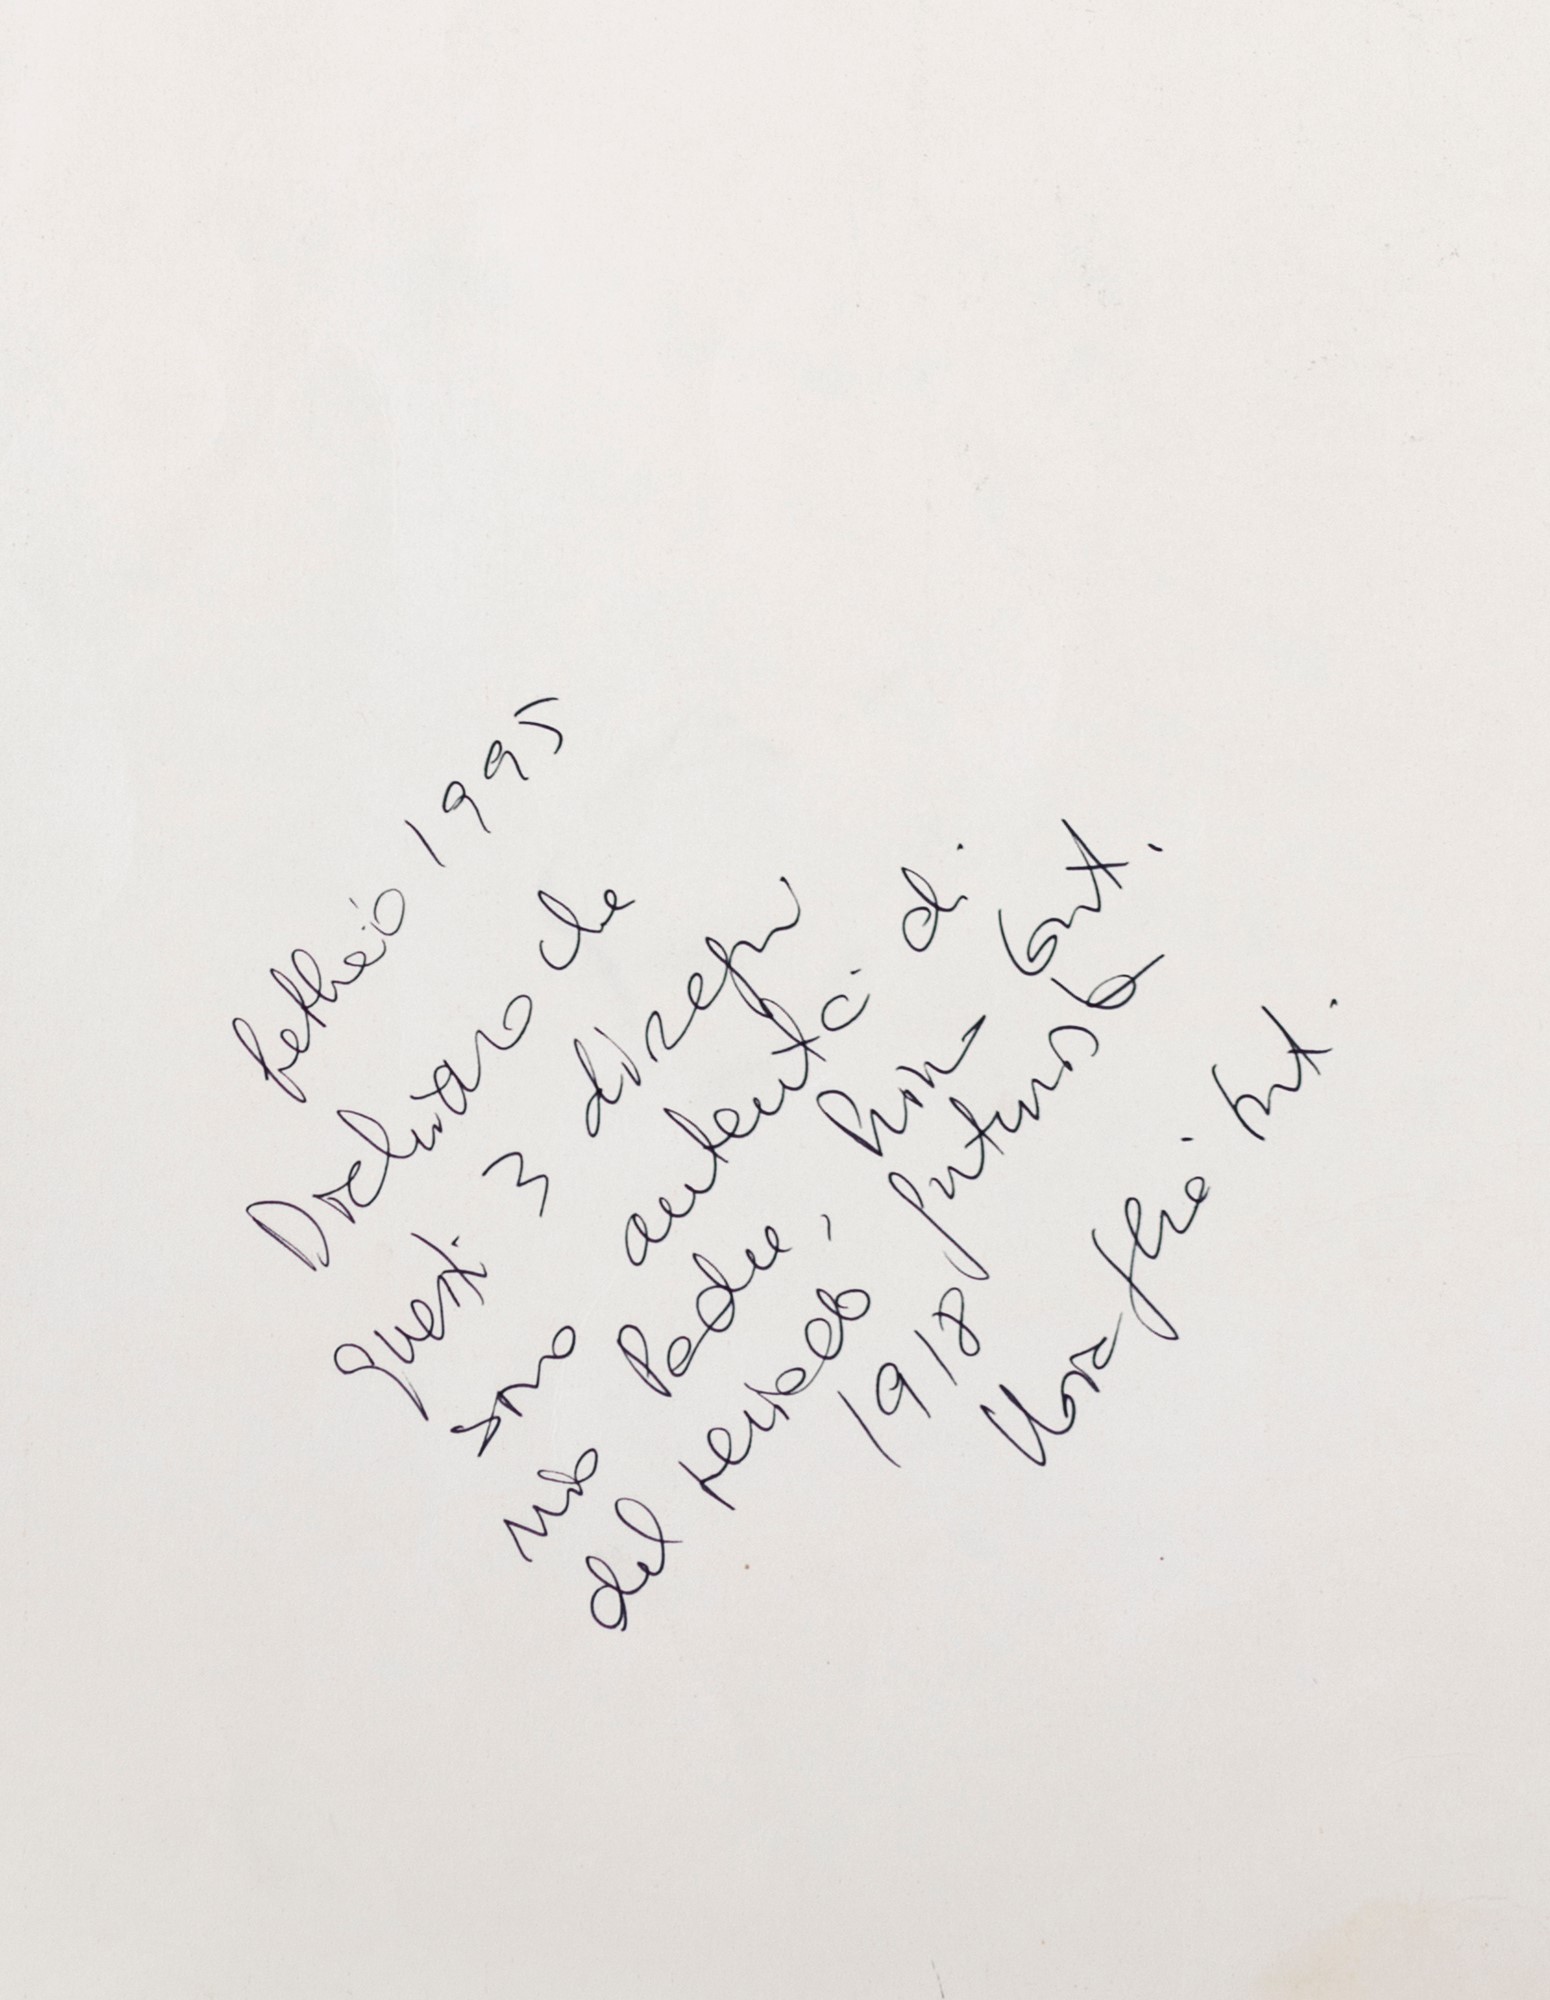 1995
Dichiaro che
questi 3 disegni
sono autentici di
mio Padre, Primo Conti.
del periodo futurista
1918
Maria Gloria Conti.